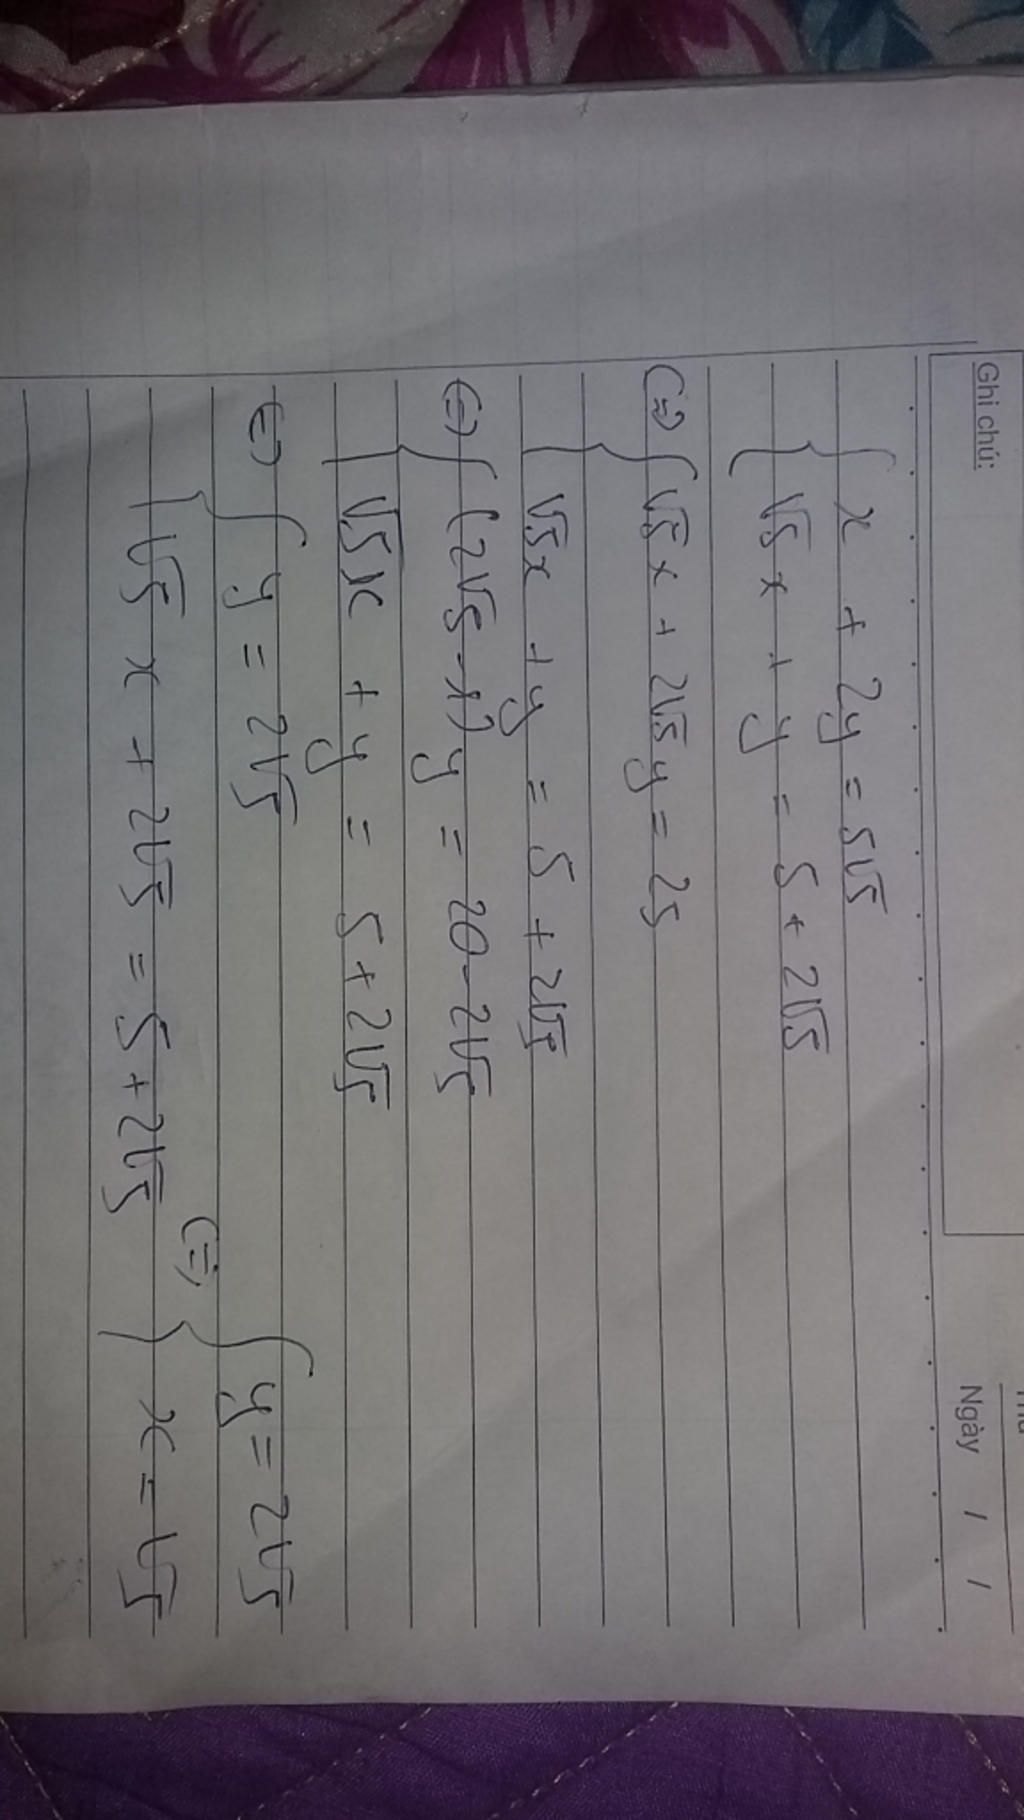 Ghi chú:
Ngày / /
{ x + 2y = 5√5
{ √5 x + y = 5 + 2√5
(=) { √5 x + 2√5 y = 25
{ √5x + y = 5 + 2√5
(=) { (2√5 - 1) y = 20 - 2√5
{ √5x + y = 5 + 2√5
(=) { y = 2√5
{ √5 x + 2√5 = 5 + 2√5
(=) { y = 2√5
{ x = √5